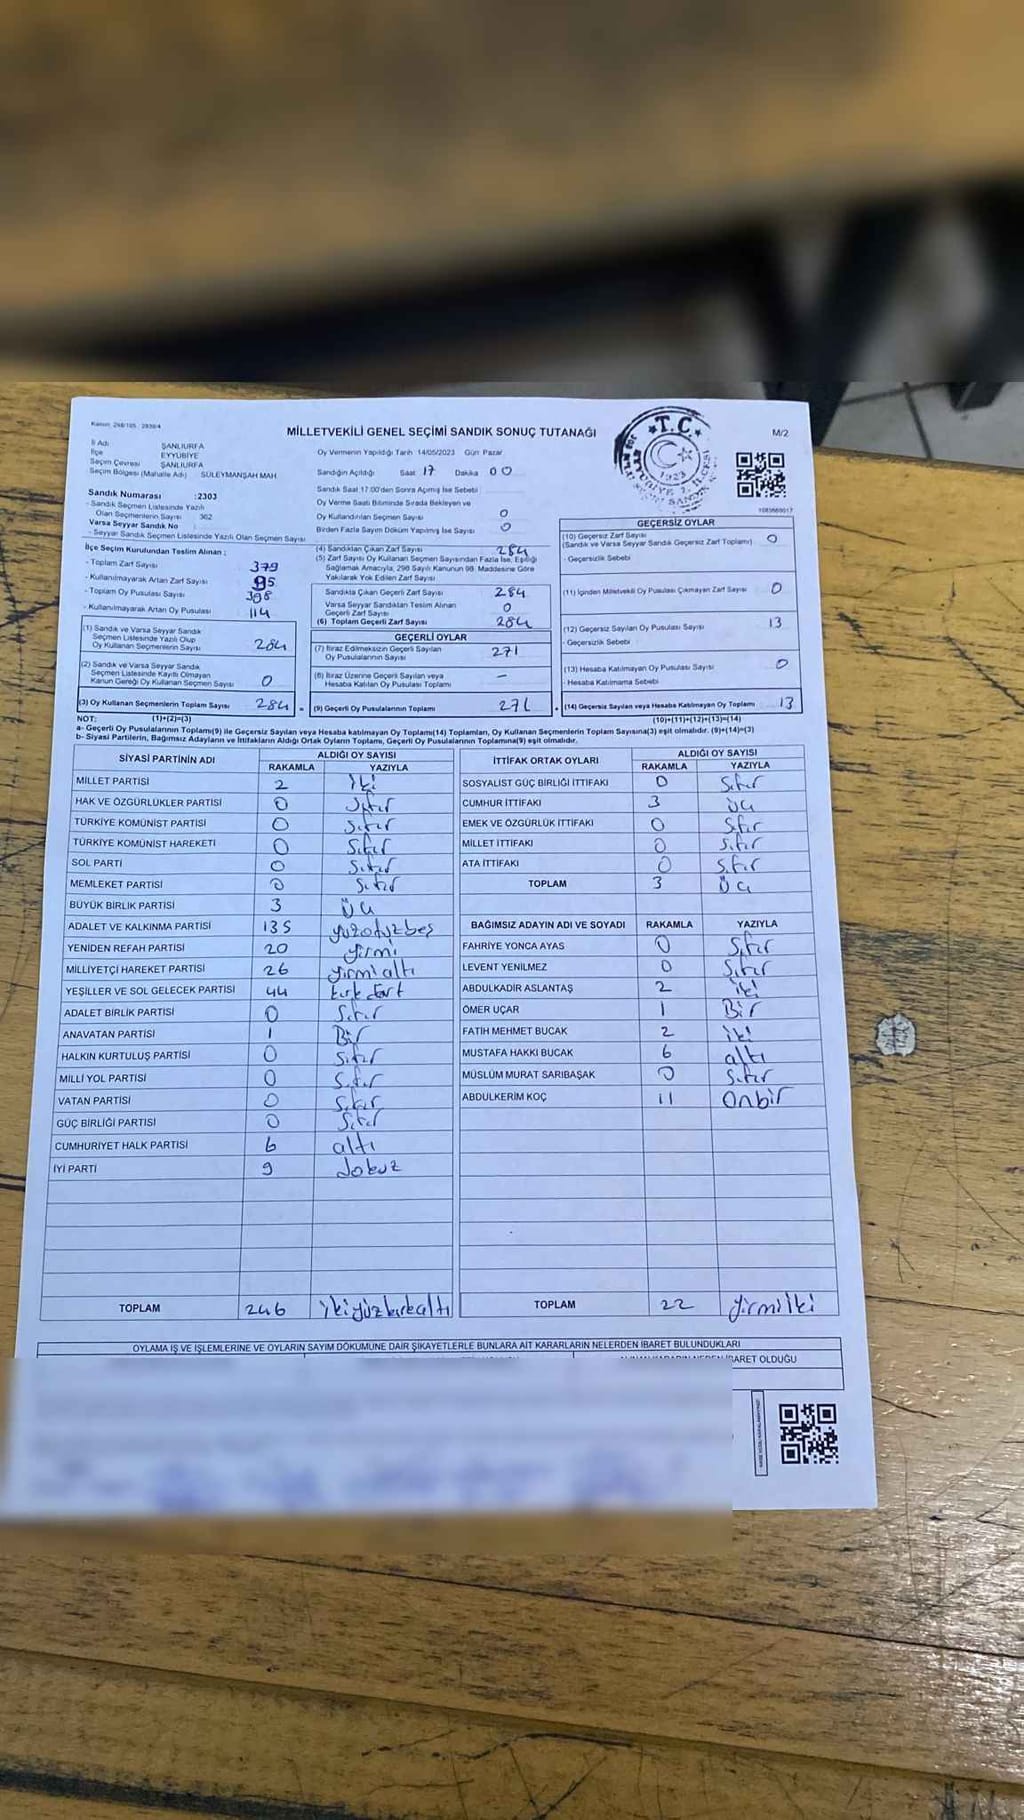 Kanun: 298/105 - 2839/4
MİLLETVEKİLİ GENEL SEÇİMİ SANDIK SONUÇ TUTANAĞI
M/2
T.C.
1923
İl Adı ŞANLIURFA
İlçe EYYÜBİYE
Seçim Çevresi ŞANLIURFA
Seçim Bölgesi (Mahalle Adı) SÜLEYMANŞAH MAH
Sandık Numarası :2303
- Sandık Seçmen Listesinde Yazılı
Olan Seçmenlerin Sayısı 362
Varsa Seyyar Sandık No
- Seyyar Sandık Seçmen Listesinde Yazılı Olan Seçmen Sayısı
Oy Vermenin Yapıldığı Tarih 14/05/2023 Gün Pazar
Sandığın Açıldığı Saat 17 Dakika 00
Sandık Saat 17:00'den Sonra Açılmış İse Sebebi
Oy Verme Saati Bitiminde Sırada Bekleyen ve
Oy Kullandırılan Seçmen Sayısı 0
Birden Fazla Sayım Döküm Yapılmış İse Sayısı 0
İlçe Seçim Kurulundan Teslim Alınan ;
- Toplam Zarf Sayısı 379
- Kullanılmayarak Artan Zarf Sayısı 95
- Toplam Oy Pusulası Sayısı 398
- Kullanılmayarak Artan Oy Pusulası 114
(1) Sandık ve Varsa Seyyar Sandık
Seçmen Listesinde Yazılı Olup
Oy Kullanan Seçmenlerin Sayısı 284
(2) Sandık ve Varsa Seyyar Sandık
Seçmen Listesinde Kayıtlı Olmayan
Kanun Gereği Oy Kullanan Seçmen Sayısı 0
(3) Oy Kullanan Seçmenlerin Toplam Sayısı 284
(4) Sandıktan Çıkan Zarf Sayısı 284
(5) Zarf Sayısı Oy Kullanan Seçmen Sayısından Fazla İse, Eşitliği
Sağlamak Amacıyla, 298 Sayılı Kanunun 98. Maddesine Göre
Yakılarak Yok Edilen Zarf Sayısı
Sandıkta Çıkan Geçerli Zarf Sayısı 284
Varsa Seyyar Sandıktan Teslim Alınan
Geçerli Zarf Sayısı 0
(6) Toplam Geçerli Zarf Sayısı 284
GEÇERLİ OYLAR
(7) İtiraz Edilmeksizin Geçerli Sayılan
Oy Pusulalarının Sayısı 271
(8) İtiraz Üzerine Geçerli Sayılan veya
Hesaba Katılan Oy Pusulası Toplamı -
= (9) Geçerli Oy Pusulalarının Toplamı 271
1083669017
GEÇERSİZ OYLAR
(10) Geçersiz Zarf Sayısı
(Sandık ve Varsa Seyyar Sandık Geçersiz Zarf Toplamı) 0
- Geçersizlik Sebebi
(11) İçinden Milletvekili Oy Pusulası Çıkmayan Zarf Sayısı 0
(12) Geçersiz Sayılan Oy Pusulası Sayısı 13
- Geçersizlik Sebebi
(13) Hesaba Katılmayan Oy Pusulası Sayısı 0
- Hesaba Katılmama Sebebi
+ (14) Geçersiz Sayılan veya Hesaba Katılmayan Oy Toplamı 13
NOT: (1)+(2)=(3) (10)+(11)+(12)+(13)=(14)
a- Geçerli Oy Pusulalarının Toplamı(9) ile Geçersiz Sayılan veya Hesaba katılmayan Oy Toplamı(14) Toplamları, Oy Kullanan Seçmenlerin Toplam Sayısına(3) eşit olmalıdır. (9)+(14)=(3)
b- Siyasi Partilerin, Bağımsız Adayların ve İttifakların Aldığı Ortak Oyların Toplamı, Geçerli Oy Pusulalarının Toplamına(9) eşit olmalıdır.
SİYASİ PARTİNİN ADI ALDIĞI OY SAYISI
RAKAMLA YAZIYLA
MİLLET PARTİSİ 2 iki
HAK VE ÖZGÜRLÜKLER PARTİSİ 0 Sıfır
TÜRKİYE KOMÜNİST PARTİSİ 0 Sıfır
TÜRKİYE KOMÜNİST HAREKETİ 0 Sıfır
SOL PARTİ 0 Sıfır
MEMLEKET PARTİSİ 0 Sıfır
BÜYÜK BİRLİK PARTİSİ 3 üç
ADALET VE KALKINMA PARTİSİ 135 yüzotuzbeş
YENİDEN REFAH PARTİSİ 20 yirmi
MİLLİYETÇİ HAREKET PARTİSİ 26 yirmialtı
YEŞİLLER VE SOL GELECEK PARTİSİ 44 kırkdört
ADALET BİRLİK PARTİSİ 0 Sıfır
ANAVATAN PARTİSİ 1 Bir
HALKIN KURTULUŞ PARTİSİ 0 Sıfır
MİLLİ YOL PARTİSİ 0 Sıfır
VATAN PARTİSİ 0 Sıfır
GÜÇ BİRLİĞİ PARTİSİ 0 Sıfır
CUMHURİYET HALK PARTİSİ 6 altı
İYİ PARTİ 9 dokuz
TOPLAM 246 ikiyüzkırkaltı
İTTİFAK ORTAK OYLARI ALDIĞI OY SAYISI
RAKAMLA YAZIYLA
SOSYALİST GÜÇ BİRLİĞİ İTTİFAKI 0 Sıfır
CUMHUR İTTİFAKI 3 üç
EMEK VE ÖZGÜRLÜK İTTİFAKI 0 Sıfır
MİLLET İTTİFAKI 0 Sıfır
ATA İTTİFAKI 0 Sıfır
TOPLAM 3 üç
BAĞIMSIZ ADAYIN ADI VE SOYADI RAKAMLA YAZIYLA
FAHRİYE YONCA AYAS 0 Sıfır
LEVENT YENİLMEZ 0 Sıfır
ABDULKADİR ASLANTAŞ 2 iki
ÖMER UÇAR 1 Bir
FATİH MEHMET BUCAK 2 iki
MUSTAFA HAKKI BUCAK 6 altı
MÜSLÜM MURAT SARIBAŞAK 0 Sıfır
ABDULKERİM KOÇ 11 Onbir
TOPLAM 22 yirmiiki
OYLAMA İŞ VE İŞLEMLERİNE VE OYLARIN SAYIM DÖKÜMÜNE DAİR ŞİKAYETLERLE BUNLARA AİT KARARLARIN NELERDEN İBARET BULUNDUKLARI
OLDUĞU